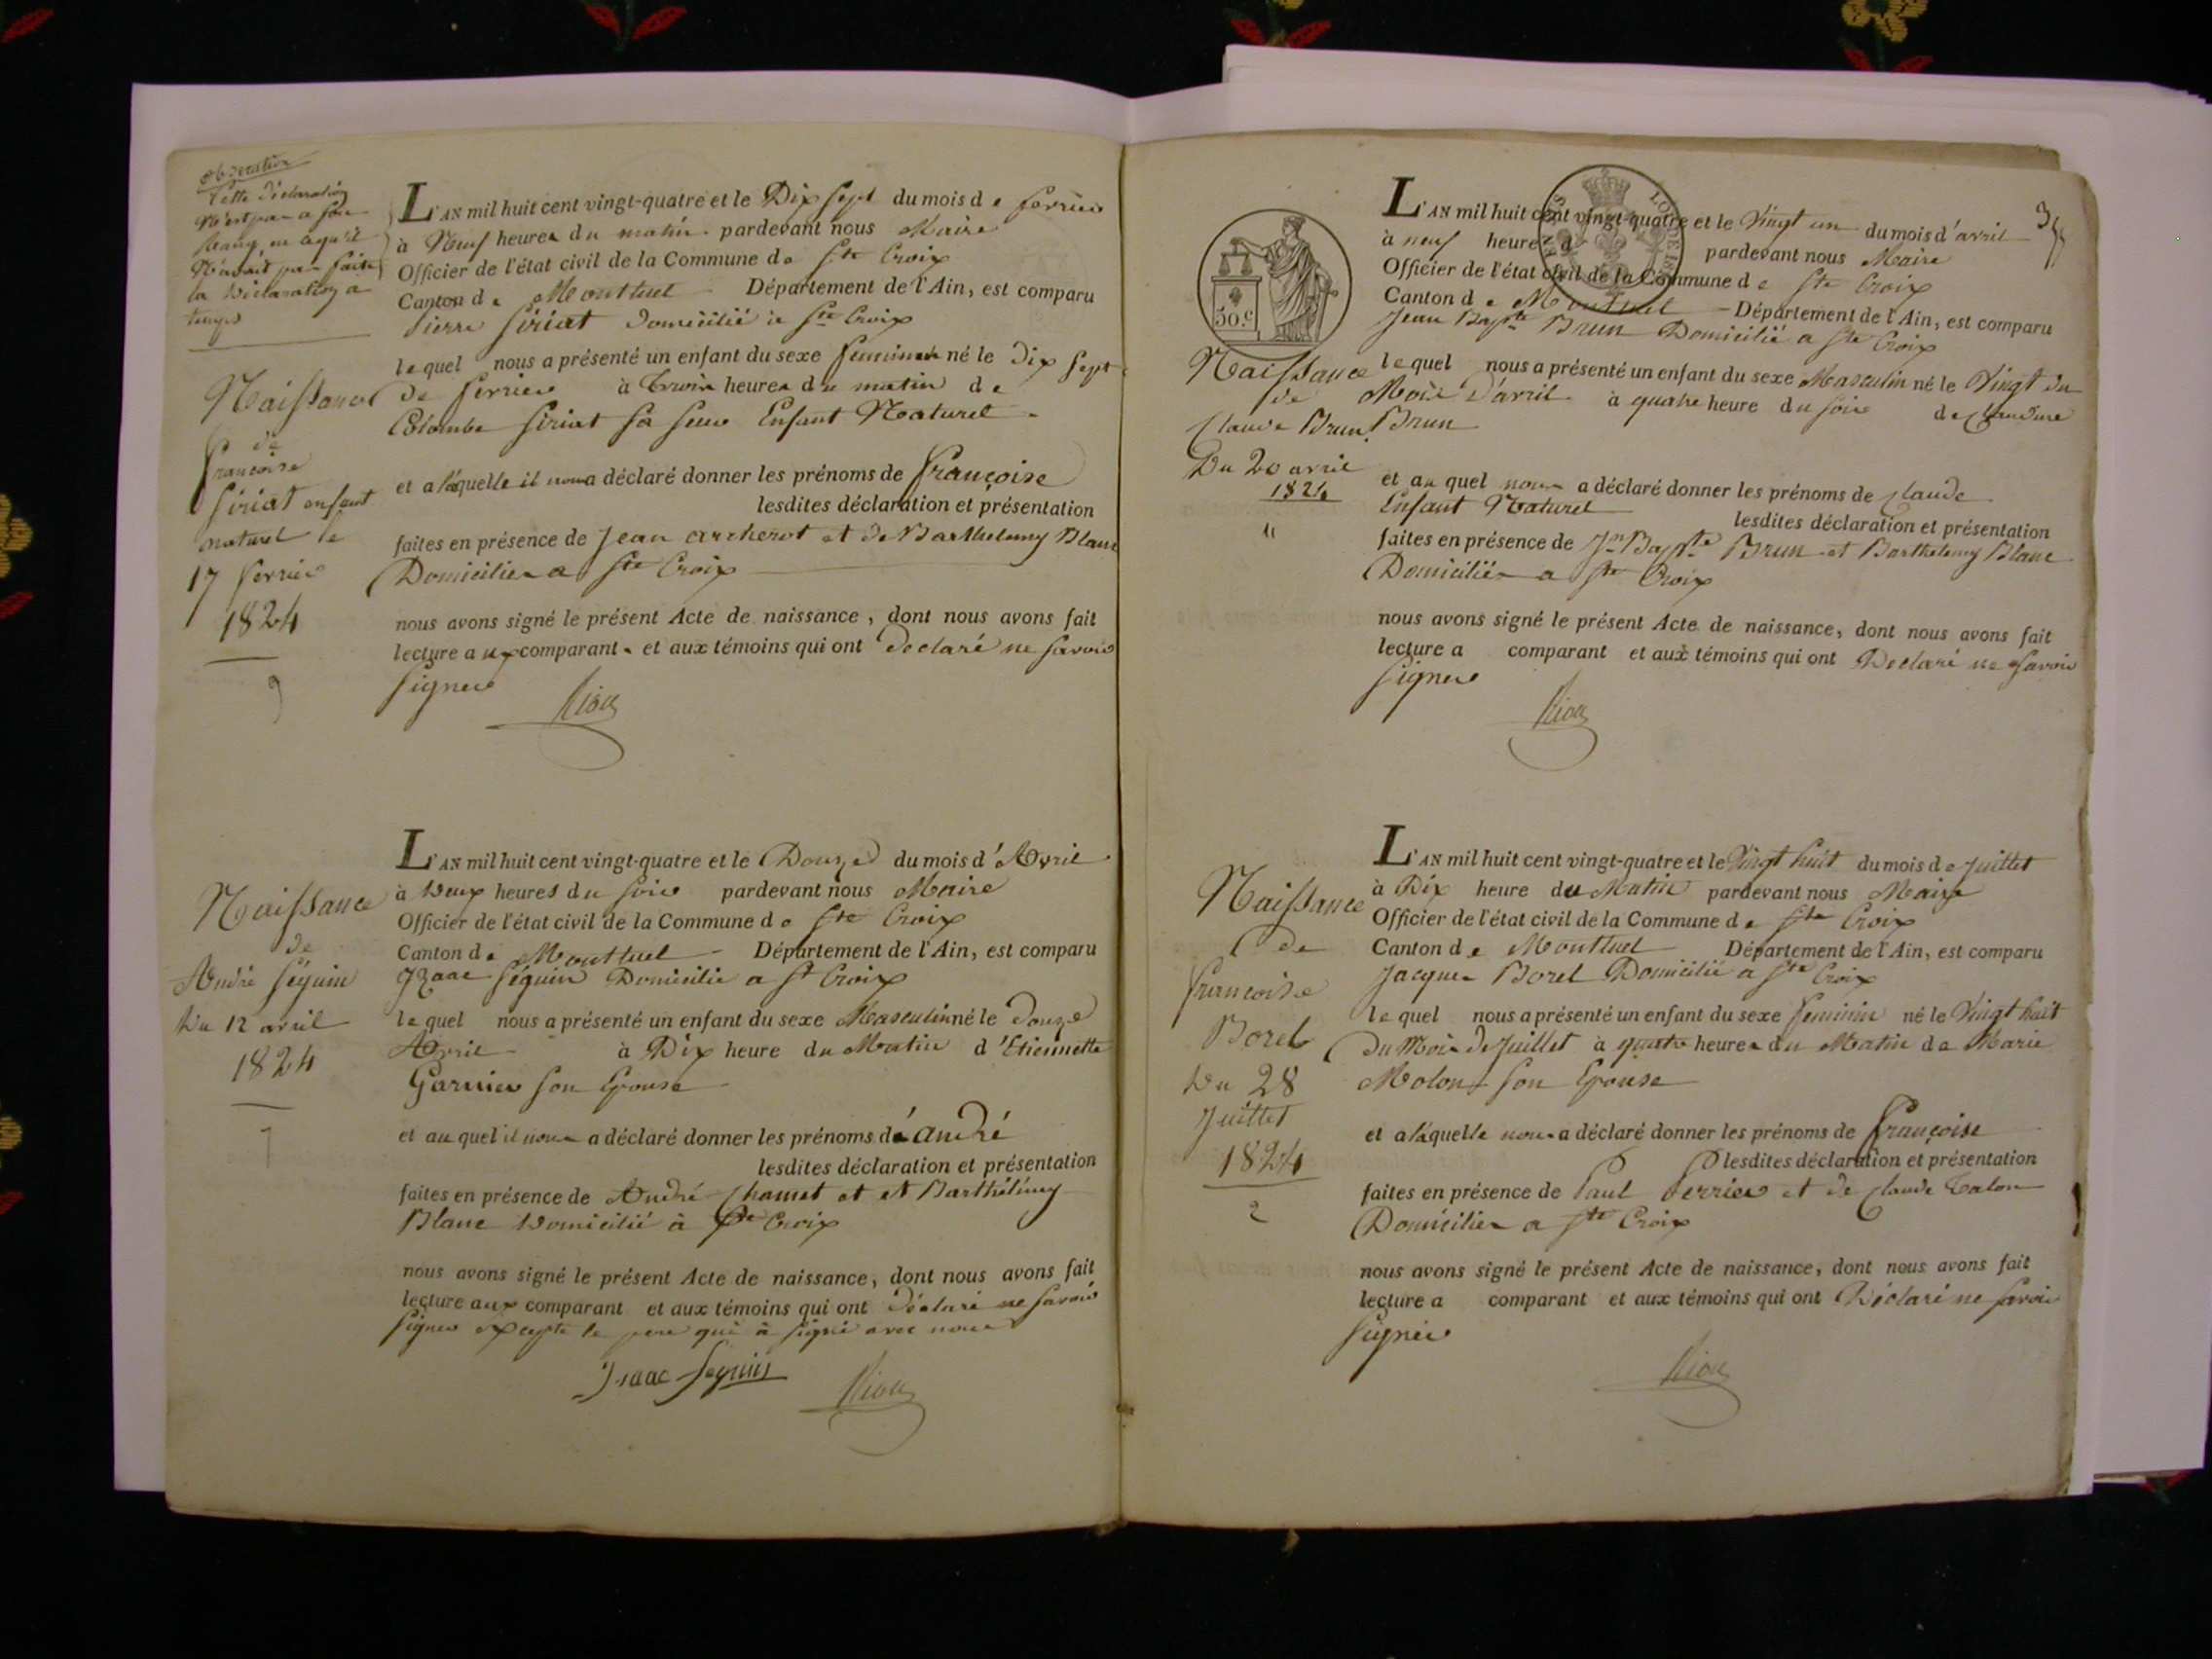 observation
Cette déclaration
n'est pas a son
Rang en ce qu'il
n'avait pas faite
la Déclaration a
temps
Naissance
de
françoise
Siriat enfant
naturel le
17 fevrier
1824
9
L'AN mil huit cent vingt-quatre et le Dix sept du mois de fevrier
à Neuf heures du matin pardevant nous Maire
Officier de l'état civil de la Commune de Ste Croix
Canton de Montluel Département de l'Ain, est comparu
Pierre Siriat Domicilié à Ste Croix
lequel nous a présenté un enfant du sexe feminin né le Dix sept
de fevrier à trois heures du matin de
Colombe Siriat sa seur Enfant Naturel
et a laquelle il nous a déclaré donner les prénoms de françoise
lesdites déclaration et présentation
faites en présence de Jean archerot et de Barthelemy Blanc
Domiciliés a Ste Croix
nous avons signé le présent Acte de naissance, dont nous avons fait
lecture aux comparant et aux témoins qui ont declaré ne savoir
signer
Naissance
de
André Séguin
Du 12 avril
1824
L'AN mil huit cent vingt-quatre et le Douze du mois d'Avril
à Deux heures du soir pardevant nous Maire
Officier de l'état civil de la Commune de Ste Croix
Canton de Montluel Département de l'Ain, est comparu
Izaac Séguin Domicilié a St Croix
lequel nous a présenté un enfant du sexe Masculin né le Douze
Avril à Dix heure du Matin d'Etiennette
Garnier son Epouse
et auquel il nous a déclaré donner les prénoms de André
lesdites déclaration et présentation
faites en présence de André Chamet et et Barthélémy
Blanc Domicilié à Ste Croix
nous avons signé le présent Acte de naissance, dont nous avons fait
lecture aux comparant et aux témoins qui ont déclaré ne savoir
signer excepté le pere qui à signé avec nous
Isaac Seguin
30.c
3
Naissance
de
Claude Brun
Du 20 avril
1824
L'AN mil huit cent vingt-quatre et le Vingt un du mois d'avril
à neuf heures d pardevant nous Maire
Officier de l'état civil de la Commune de Ste Croix
Canton de Montluel Département de l'Ain, est comparu
Jean Bapte Brun Domicilié a Ste Croix
lequel nous a présenté un enfant du sexe Masculin né le Vingt du
Mois d'avril à quatre heure du soir de Claudine
Brun
et au quel nous a déclaré donner les prénoms de Claude
Enfant Naturel
lesdites déclaration et présentation
faites en présence de Jn Bapte Brun et Barthelemy Blanc
Domiciliés a Ste Croix
nous avons signé le présent Acte de naissance, dont nous avons fait
lecture a comparant et aux témoins qui ont Declaré ne savoir
signer
Naissance
de
francoise
Borel
Du 28
Juillet
1824
2
L'AN mil huit cent vingt-quatre et le Vingt huit du mois de Juillet
à Dix heure du Matin pardevant nous Maire
Officier de l'état civil de la Commune de Ste Croix
Canton de Montluel Département de l'Ain, est comparu
Jacques Borel Domicilié a Ste Croix
lequel nous a présenté un enfant du sexe feminin né le Vingt huit
Du Mois de Juillet à quatre heures du Matin de Marie
Molon son Epouse
et a laquelle nous a déclaré donner les prénoms de françoise
lesdites déclaration et présentation
faites en présence de Paul Perrier et de Claude Talon
Domiciliés a Ste Croix
nous avons signé le présent Acte de naissance, dont nous avons fait
lecture a comparant et aux témoins qui ont Déclaré ne savoir
signer